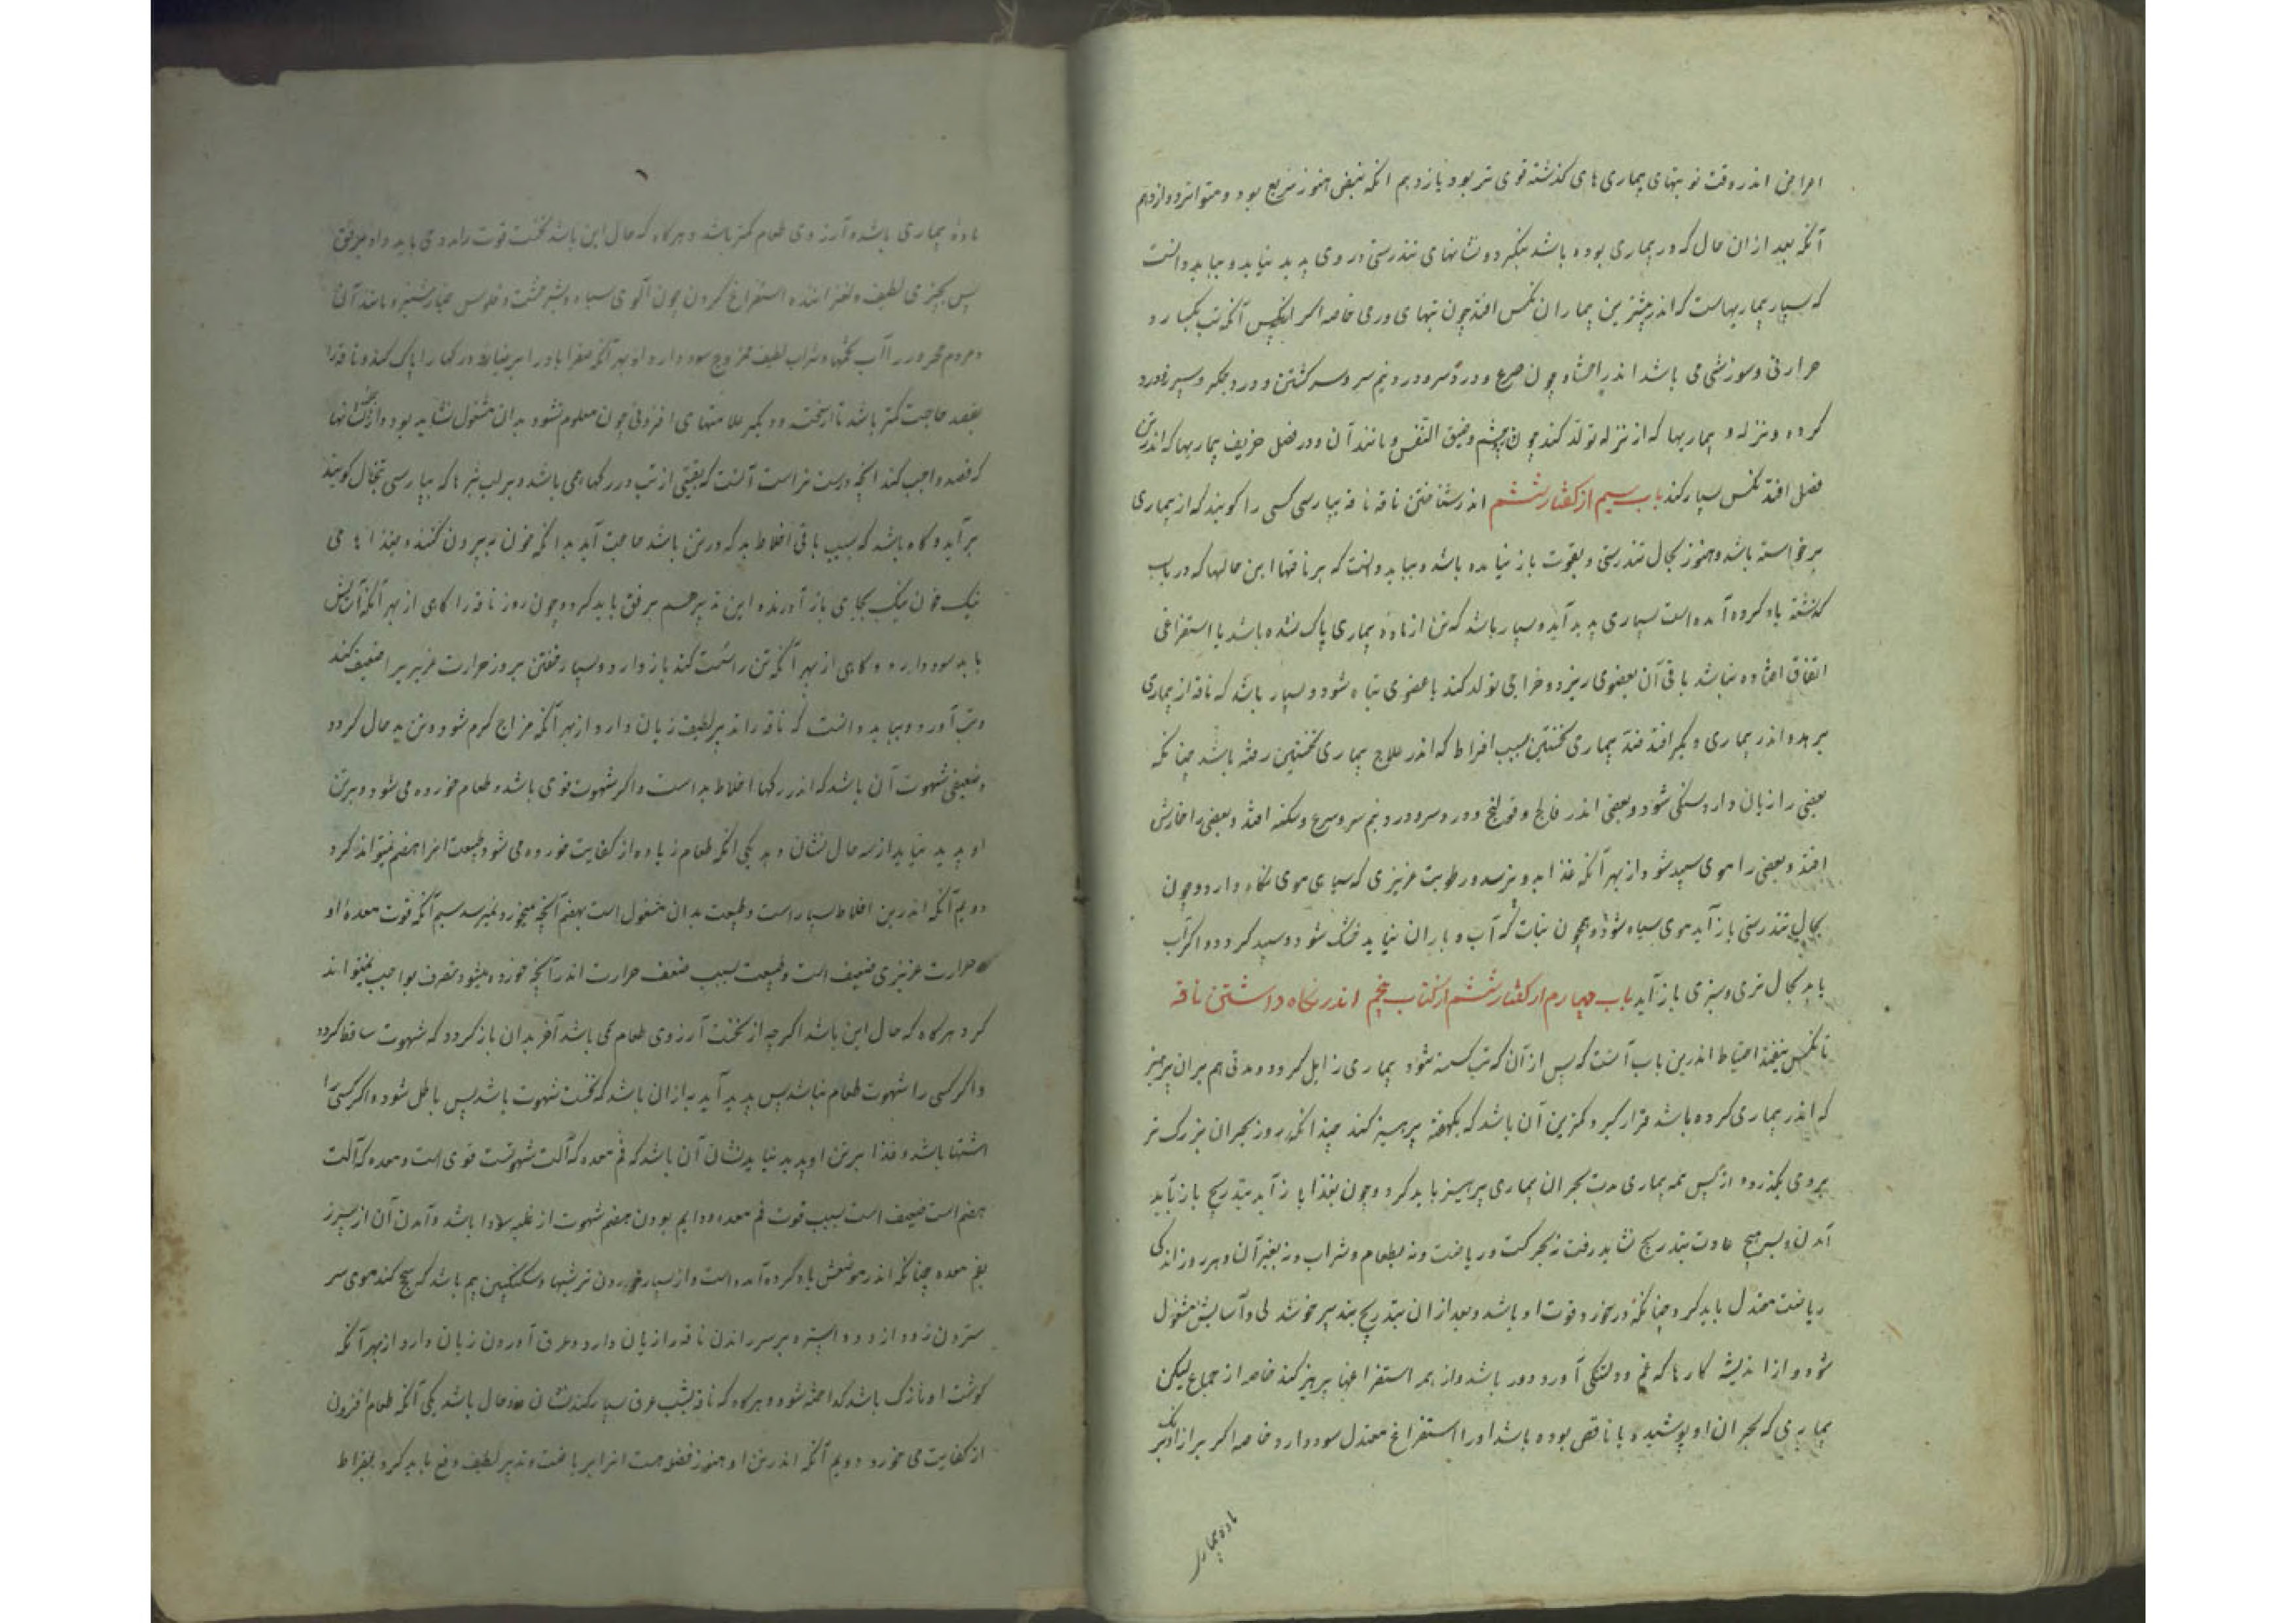 امراض اندر وقت نوبتهای بیماری های کذشته قوی تر بود یازدهم انکه نبض هنوز سریع بود و متواتر دوازدهم
آنکه بعد از ان حال که در بیماری بوده باشد بنکردد و نشانهای تندرستی در وی پدید نیاید و بباید دانست
که بسیار بیماریهاست که اندر بیشترین بیماران نکس افتد چون تبهای وری خاصه اکر ازپس آنکه تب بکسارد
حرارتی و سوزشی می باشد اندر احشا و چون صرع و درد سر و درد نیم سر و سر کشتن و درد جکر و سپرز و درد
کرده و نزله و بیماریها که از نزله تولد کند چون چشم و ضیق النفس و مانند آن و در فصل خریف بیماریها که اندرین
فصل افتد نکس بسیار کند باب سیم از کفتار ششم اندر شناختن ناقه ناقه بپارسی کسی را کویند که از بیماری
برخواسته باشد و هنوز بحال تندرستی و بقوت باز نیامده باشد و بباید دانست که بر ناقها این حالها که در باب
کذشته یاد کرده آمده است بسیاری پدید آید و بسیار باشد که تن از ماده بیماری پاک نشده باشد یا استفراغی
اتفاق افتاده نباشد باقی آن بعضوی ریزد و خراجی تولد کند یا عضوی تباه شود و بسیار باشد که ناقه از بیماری
برهد و اندر بیماری دیکر افتد ضد بیماری نخستین بسبب افراط که اندر علاج بیماری نخستین رفته باشد چنانکه
بعضی را زبان دارد سنکی شود و بعضی اندر فالج و قولنج و درد سر و درد نیم سر و صرع و سکته افتد و بعضی را خارش
افتد و بعضی را موی سپید شود از بهر آنکه غذا بدو نرسد و رطوبت غریزی که سیاهی موی نکاه دارد و چون
بحال تندرستی باز آید موی سیاه شود همچون نبات که آب و باران نیابد خشک شود و سپید کردد و اکر آب
یابد بحال تری و سبزی باز آید باب چهارم از کفتار ششم از کتاب پنجم اندر نکاه داشتن ناقه
تا نکس نیفتد احتیاط اندرین باب آنست که پس از آن که تب کسسته شود و بیماری زایل کردد و مدتی هم بران پرهیز
که اندر بیماری کرده باشد قرار کیرد و کمترین آن باشد که یکهفته پرهیز کند چندانکه روز بحران بزرک تر
بروی بکذرد و از پس همه بیماری مدت بحران بیماری پرهیز باید کرد و چون بغذا باز آید بتدریج باز باید
آمدن و بسر هیچ عادت بتدریج نشاید رفت نه بحرکت و ریاضت و نه بطعام و شراب و نه بغیر آن و هر روز اندکی
ریاضت معتدل باید کرد چنانکه در خورد قوت او باشد و بعد از ان بتدریج بتدبیر خوشدلی و آسایش مشغول
شود و از اندیشه کارها که غم و دلتنکی آورد دور باشد و از همه استفراغها پرهیز کند خاصه از جماع لیکن
بیماری که بحران او پوشیده یا ناقص بوده باشد او را استفراغ معتدل سود دارد خاصه اکر براز اندک
ماده بیماری
ماده بیماری باشد و آرزوی طعام کمتر باشد و هرکاه که حال این باشد نخست قوت را مددی باید داد برفق
پس بچیزی لطیف و لغزاننده استفراغ کردن چون آلوی سیاه و شیرخشت و فلوس خیارشنبر و مانند آن
و مردم محرور را آب تخمها و شراب لطیف ممزوج سود دارد از بهر آنکه صفرا بادرار براند و رکها را پاک کند و ناقه را
بفصد حاجت کمتر باشد تا ازنخست و دیکر علامتهای افزونی چون معلوم نشود بدان مشغول نشاید بود و از نشانها
که فصد واجب کند انچه درست تر است آنست که بقیتی از تب در رکها می باشد و بر لب بثرها که بپارسی تبخال کویند
برآید و کاه باشد که بسبب باقی اخلاط بد که در تن باشد حاجت آید بدانکه خون بد بیرون کنند و بغذا ها می
نیک خون نیک بجای باز آورند و این تدبیر هم برفق باید کرد و چون روز ناقه را کاهی از بهر آنکه آسایش
یابد سود دارد و کاهی از بهر آنکه تن را سست کند باز دارد و بسیار خفتن بروز حرارت غریزی را ضعیف کند
و تب آورد و بباید دانست که ناقه را تدبیر لطیف زیان دارد از بهر آنکه مزاج کرم شود و تن بد حال کردد
و ضعیفی شهوت آن باشد که اندر رکها اخلاط بد است و اکر شهوت قوی باشد و طعام خورده می شود و بر تن
او پدید نیاید از سه حال نشان دهد یکی انکه طعام زیاده از کفایت خورده می شود و طبیعت انرا هضم نمیتواند کرد
دویم آنکه اندر تن اخلاط بسیار است و طبیعت بدان مشغول است بهضم آنچه میخورد نمیرسد سیم آنکه قوت معده او
حرارت غریزی ضعیف است و طبیعت بسبب ضعف حرارت اندر آنچه خورده میشود تصرف بواجب نمیتواند
کرد هرکاه که حال این باشد اکرچه از نخست آرزوی طعام می باشد آخر بدان باز کردد که شهوت ساقط کردد
و اکر کسی را شهوت طعام نباشد پس پدید آید به از ان باشد که نخست شهوت باشد پس باطل شود و اکر کسی را
اشتها باشد و غذا بر تن او پدید نیاید نشان آن باشد که فم معده که آلت شهوتست قوی است و معده که آلت
هضم است ضعیف است بسبب قوت فم معده و دایم بودن هضم شهوت از غلبه سودا باشد و آمدن آن از سپرز
بفم معده چنانکه اندر موضعش یاد کرده آمده است و از بسیار خوردن ترشیها و سکنکبین هم باشد که سحج کند موی سر
ستردن زود از زود و استره بر سر راندن ناقه را زیان دارد و عرق آوردن زیان دارد از بهر آنکه
کوشت او نازک باشد کداخته شود و هرکاه که ناقه بشب عرق بسیار کند نشان دو حال باشد یکی آنکه طعام افزون
از کفایت می خورد دویم آنکه اندر تن او هنوز فضول هست انرا بریاضت و تدبیر لطیف دفع باید کرد بقراط